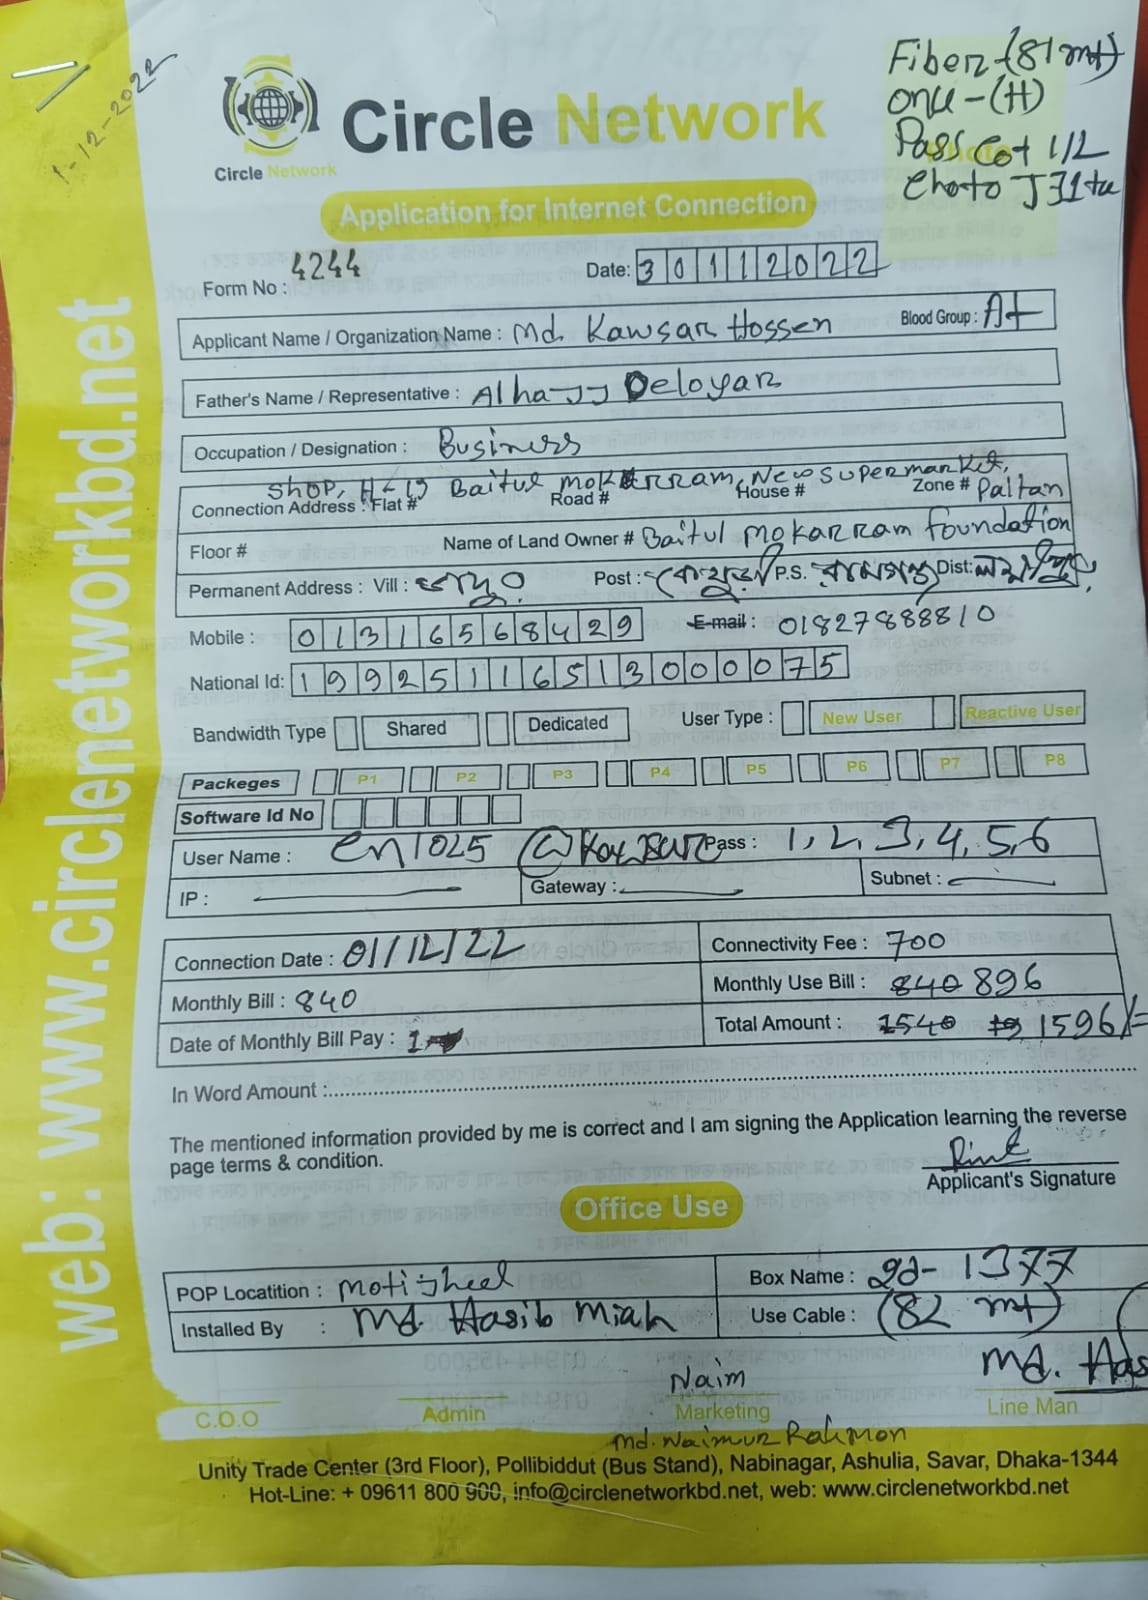 1-12-2022
Fiber-(81 mt)
onu-(H)
Pass Cot 1/2
Choto J31ta
Circle Network
Circle Network
Application for Internet Connection
Form No : 4244
Date: 30112022
Applicant Name / Organization Name : Md. Kawsar Hossen Blood Group : A+
Father's Name / Representative : Alhajj Deloyar
Occupation / Designation : Business
Shop, H-19 Baitul mokarram, New supermarket,
Connection Address : Flat # Road # House # Zone # Paltan
Floor # Name of Land Owner # Baitul mokarram foundation
Permanent Address : Vill : Post : P.S. রামগঞ্জ Dist: লক্ষ্মীপুর
Mobile : 01316568429 E-mail : 01827888810
National Id: 19925116513000075
Bandwidth Type Shared Dedicated User Type : New User Reactive User
Packeges P1 P2 P3 P4 P5 P6 P7 P8
Software Id No
User Name : cn1025 @kawsar Pass : 1,2,3,4,5,6
IP : Gateway : Subnet :
Connection Date : 01/12/22 Connectivity Fee : 700
Monthly Bill : 840 Monthly Use Bill : 840 896
Date of Monthly Bill Pay : 1 Total Amount : 1540 1596/=
In Word Amount :
The mentioned information provided by me is correct and I am signing the Application learning the reverse
page terms & condition.
Applicant's Signature
Office Use
POP Locatition : motijheel Box Name : gd-1377
Installed By : Md. Hasib Miah Use Cable : (82 mt)
Naim Md. Has
C.O.O Admin Marketing Line Man
md. Naimur Rahman
Unity Trade Center (3rd Floor), Pollibiddut (Bus Stand), Nabinagar, Ashulia, Savar, Dhaka-1344
Hot-Line: + 09611 800 900, info@circlenetworkbd.net, web: www.circlenetworkbd.net
web: www.circlenetworkbd.net